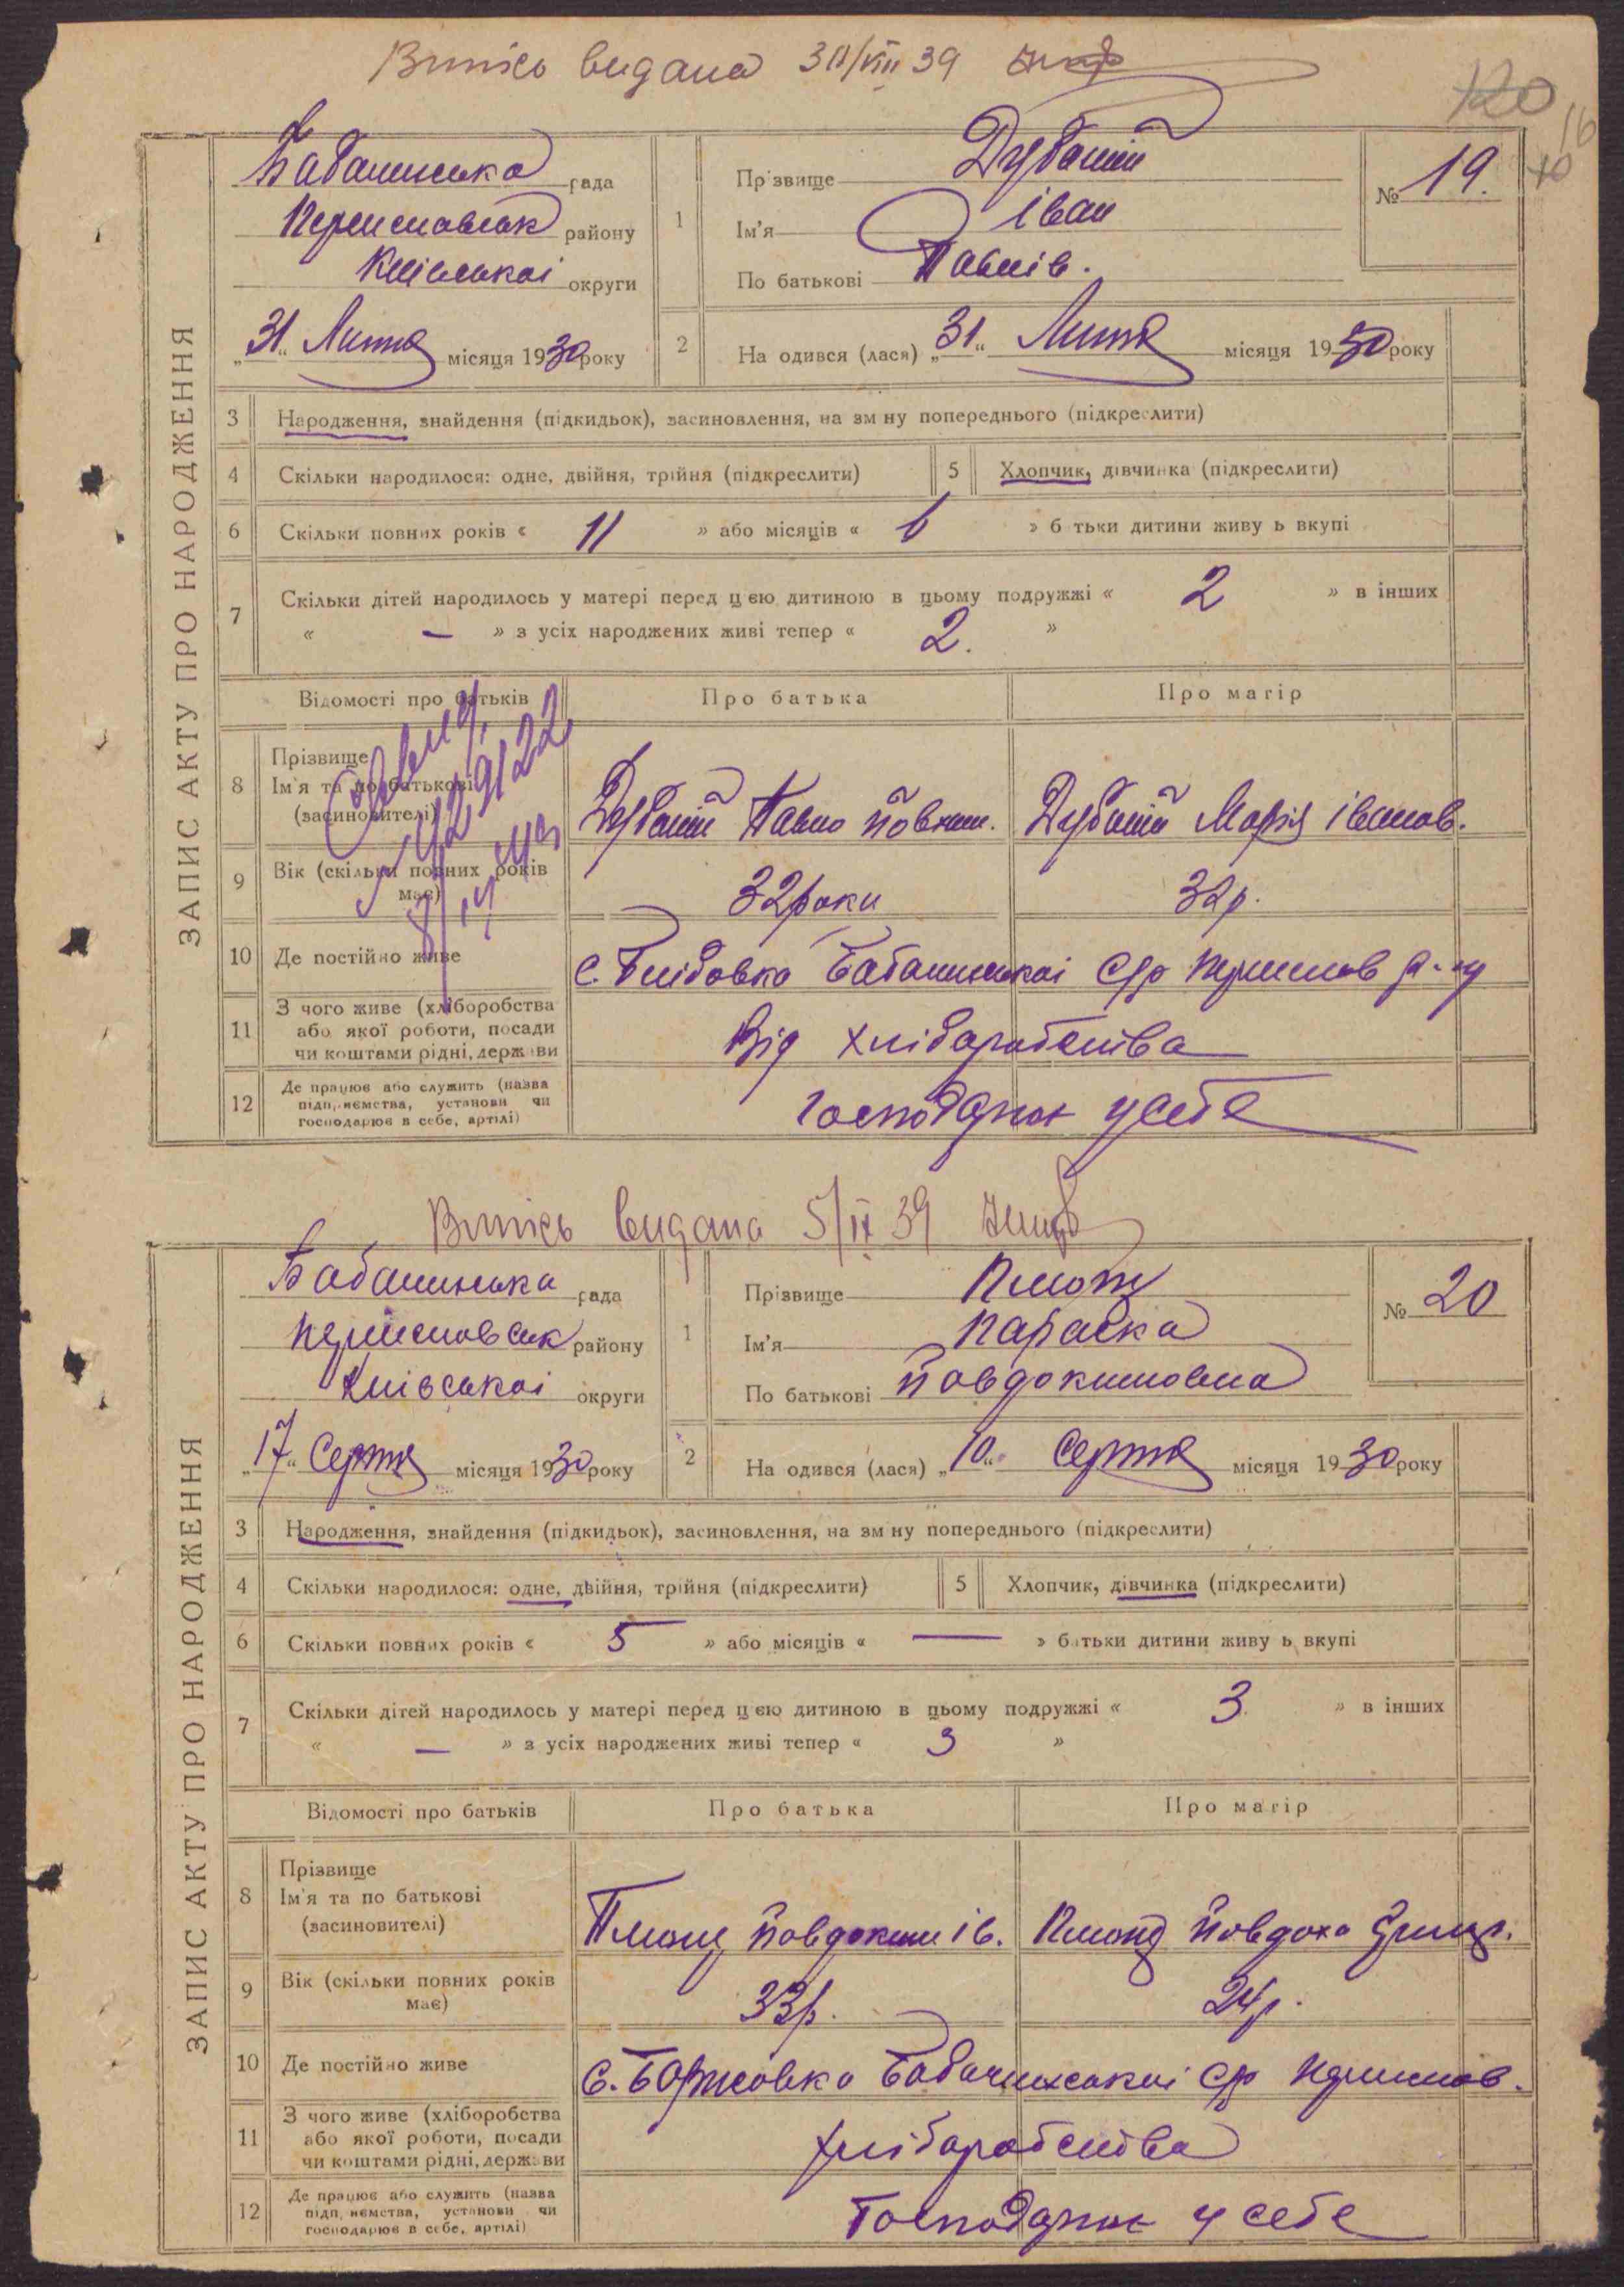 Випісь видана 30/VIII 39
120
16
10
ЗАПИС АКТУ ПРО НАРОДЖЕННЯ
Бабачинська рада
району
Київської округи
„31“ Липня місяця 1930 року
1
Прізвище
Ім'я Іван
По батькові Павлів.
№ 19.
2 На одився (лася) „31“ Липня місяця 1930 року
3 Народження, знайдення (підкидьок), засиновлення, на зм ну попереднього (підкреслити)
4 Скільки народилося: одне, двійня, трійня (підкреслити)
5 Хлопчик, дівчинка (підкреслити)
6 Скільки повних років « 11 » або місяців « 6 » б тьки дитини живу ь вкупі
7 Скільки дітей народилось у матері перед ц ею дитиною в цьому подружжі « 2 » в інших
« — » з усіх народжених живі тепер « 2. »
Відомості про батьків Про батька Про матір
8 Прізвище
Ім'я та по батькові
(засиновителі)
Павло Марія Іванов.
9 Вік (скільки повних років
має) 32 роки 32 р.
10 Де постійно живе с. Бабачинської с/р р-ну
11 З чого живе (хліборобства
або якої роботи, посади
чи коштами рідні, держави
Від хліборобства
12 Де працює або служить (назва
підприємства, установи чи
господарює в себе, артілі)
Господарює у себе
Випісь видана 5/IX 39
ЗАПИС АКТУ ПРО НАРОДЖЕННЯ
Бабачинська рада
району
Київської округи
„17“ Серпня місяця 1930 року
1
Прізвище
Ім'я Параска
По батькові Йовдокимовна
№ 20
2 На одився (лася) „10“ Серпня місяця 1930 року
3 Народження, знайдення (підкидьок), засиновлення, на зм ну попереднього (підкреслити)
4 Скільки народилося: одне, двійня, трійня (підкреслити)
5 Хлопчик, дівчинка (підкреслити)
6 Скільки повних років « 5 » або місяців « — » батьки дитини живу ь вкупі
7 Скільки дітей народилось у матері перед ц ею дитиною в цьому подружжі « 3 » в інших
« — » з усіх народжених живі тепер « 3 »
Відомості про батьків Про батька Про матір
8 Прізвище
Ім'я та по батькові
(засиновителі)
Йовдоким Ів. Йовдоха Григ.
9 Вік (скільки повних років
має) 33 р. 24 р.
10 Де постійно живе с. Бабачинської с/р
11 З чого живе (хліборобства
або якої роботи, посади
чи коштами рідні, держави
хліборобства
12 Де працює або служить (назва
підприємства, установи чи
господарює в себе, артілі)
Господарює у себе